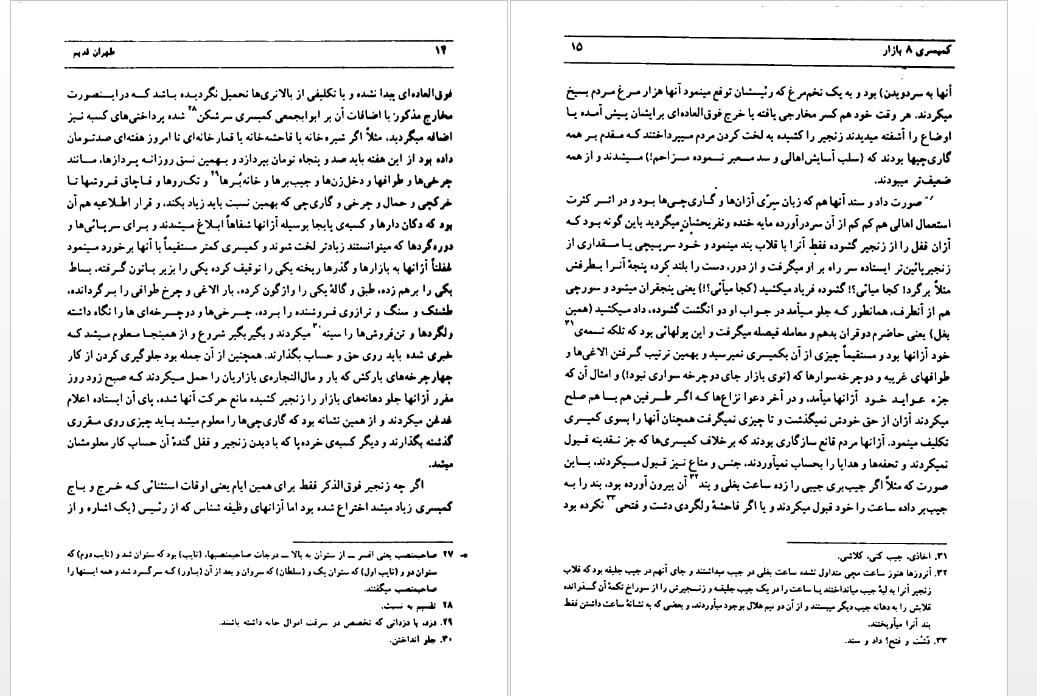 ۱۴ طهران قدیم
فوق‌العاده‌ای پیدا نشده و یا تکلیفی از بالاتری‌ها تحمیل نگردیده باشد که در اینصورت
مخارج مذکور، با اضافات آن بر ابوابجمعی کمیسری سرشکن۲۸ شده پرداختی‌های کسبه نیز
اضافه میگردید، مثلاً اگر شیره‌خانه یا فاحشه‌خانه یا قمارخانه‌ای تا امروز هفته‌ای صدتومان
داده بود از این هفته باید صد و پنجاه تومان بپردازد و بهمین نسق روزانه پردازها، مانند
چرخی‌ها و طوافها و دخل‌زن‌ها و جیب‌برها و خانه‌بُرها۲۹ و تک‌روها و قاچاق فروشها تا
خرکچی و حمال و چرخی و گاری‌چی که بهمین نسبت باید زیاد بکند، و قرار اطلاعیه هم آن
بود که دکان دارها و کسبه‌ی پابجا بوسیله آژانها شفاهاً ابلاغ میشدند و برای سرپائی‌ها و
دوره‌گردها که میتوانستند زیادتر لخت شوند و کمیسری کمتر مستقیماً با آنها برخورد مینمود
غفلتاً آژانها به بازارها و گذرها ریخته یکی را توقیف کرده یکی را بزیر باتون گرفته، بساط
یکی را برهم زده، طبق و گالهٔ یکی را واژگون کرده، بار الاغی و چرخ طوافی را برگردانده،
طشتک و سنگ و ترازوی فروشنده را برده، چرخی‌ها و دوچرخه‌ای ها را نگاه داشته
ولگردها و تن‌فروش‌ها را سینه۳۰ میکردند و بگیر بگیر شروع و از همینجا معلوم میشد که
خبری شده باید روی حق و حساب بگذارند. همچنین از آن جمله بود جلوگیری کردن از کار
چهارچرخه‌های بارکش که بار و مال‌التجاره‌ی بازاریان را حمل میکردند که صبح زود روز
مقرر آژانها جلو دهانه‌های بازار را زنجیر کشیده مانع حرکت آنها شده، پای آن ایستاده اعلام
غدغن میکردند و از همین نشانه بود که گاری‌چی‌ها را معلوم میشد باید چیزی روی مقرری
گذشته بگذارند و دیگر کسبه‌ی خرده‌پا که با دیدن زنجیر و قفل گندهٔ آن حساب کار معلومشان
میشد.
اگر چه زنجیر فوق‌الذکر فقط برای همین ایام یعنی اوقات استثنائی که خرج و باج
کمیسری زیاد میشد اختراع شده بود اما آژانهای وظیفه شناس که از رئیس (یک اشاره و از
۲۷. صاحبمنصب یعنی افسر ــ از ستوان به بالا ــ درجات صاحبمنصبها، (نایب) بود که ستوان شد و (نایب دوم) که
ستوان دو و (نایب اول) که ستوان یک و (سلطان) که سروان و بعد از آن (یاور) که سرگرد شد و همه اینها را
صاحبمنصب میگفتند.
۲۸. تقسیم به نسبت.
۲۹. دزد، یا دزدانی که تخصص در سرقت اموال خانه داشته باشند.
۳۰. جلو انداختن.
کمیسری ۸ بازار ۱۵
آنها به سردویدن) بود و به یک تخم‌مرغ که رئیسشان توقع مینمود آنها هزار مرغ مردم بسیخ
میکردند. هر وقت خود هم کسر مخارجی یافته یا خرج فوق‌العاده‌ای برایشان پیش آمده یا
اوضاع را آشفته میدیدند زنجیر را کشیده به لخت کردن مردم میپرداختند که مقدم بر همه
گاری‌چیها بودند که (سلب آسایش‌اهالی و سد معبر نموده مزاحم!) میشدند و از همه
ضعیف‌تر میبودند.
صورت داد و ستد آنها هم که زبان سِرّی آژان‌ها و گاری‌چی‌ها بود و در اثر کثرت
استعمال اهالی هم کم کم از آن سردرآورده مایه خنده وتفریحشان میگردید باین گونه بود که
آژان قفل را از زنجیر گشوده فقط آنرا با قلاب بند مینمود و خود سرپیچی یا مقداری از
زنجیرپائین‌تر ایستاده سر راه بر او میگرفت و از دور، دست را بلند کرده پنجهٔ آنرا بطرفش
مثلاً برگرد! کجا میائی؟! گشوده فریاد میکشید (کجا میآئی؟!) یعنی پنجقران میشود و سورچی
هم از آنطرف، همانطور که جلو میآمد در جواب او دو انگشت گشوده، داد میکشید (همین
بغل) یعنی حاضرم دوقران بدهم و معامله فیصله میگرفت و این پولهائی بود که تلکه تسمه‌ی۳۱
خود آژانها بود و مستقیماً چیزی از آن بکمیسری نمیرسید و بهمین ترتیب گرفتن الاغی‌ها و
طوافهای غریبه و دوچرخه‌سوارها که (توی بازار جای دوچرخه سواری نبود!) و امثال آن که
جزء عواید خود آژانها میآمد، و در آخر دعوا نزاع‌ها که اگر طرفین هم با هم صلح
میکردند آژان از حق خودش نمیگذشت و تا چیزی نمیگرفت همچنان آنها را بسوی کمیسری
تکلیف مینمود. آژانها مردم قانع سازگاری بودند که برخلاف کمیسری‌ها که جز نقدینه قبول
نمیکردند و تحفه‌ها و هدایا را بحساب نمیآوردند، جنس و متاع نیز قبول میکردند، باین
صورت که مثلاً اگر جیب‌بری جیبی را زده ساعت بغلی و بند۳۲ آن بیرون آورده بود، بند را به
جیب‌بر داده ساعت را خود قبول میکردند و یا اگر فاحشهٔ ولگردی دشت و فتحی۳۳ نکرده بود
۳۱. اخاذی، جیب کنی، کلاشی.
۳۲. آنروزها هنوز ساعت مچی متداول نشده ساعت بغلی در جیب میداشتند و جای آنهم در جیب جلیقه بود که قلاب
زنجیر آنرا به لبهٔ جیب میانداختند یا ساعت را در یک جیب جلیقه و زنجیرش را از سوراخ تکمهٔ آن گذرانده
قلابش را به دهانه جیب دیگر میبستند و از آن دو نیم هلال بوجود میآوردند، و بعضی که به نشانهٔ ساعت داشتن فقط
بند آنرا میآویختند.
۳۳. دَشت و فتح؟ داد و ستد.